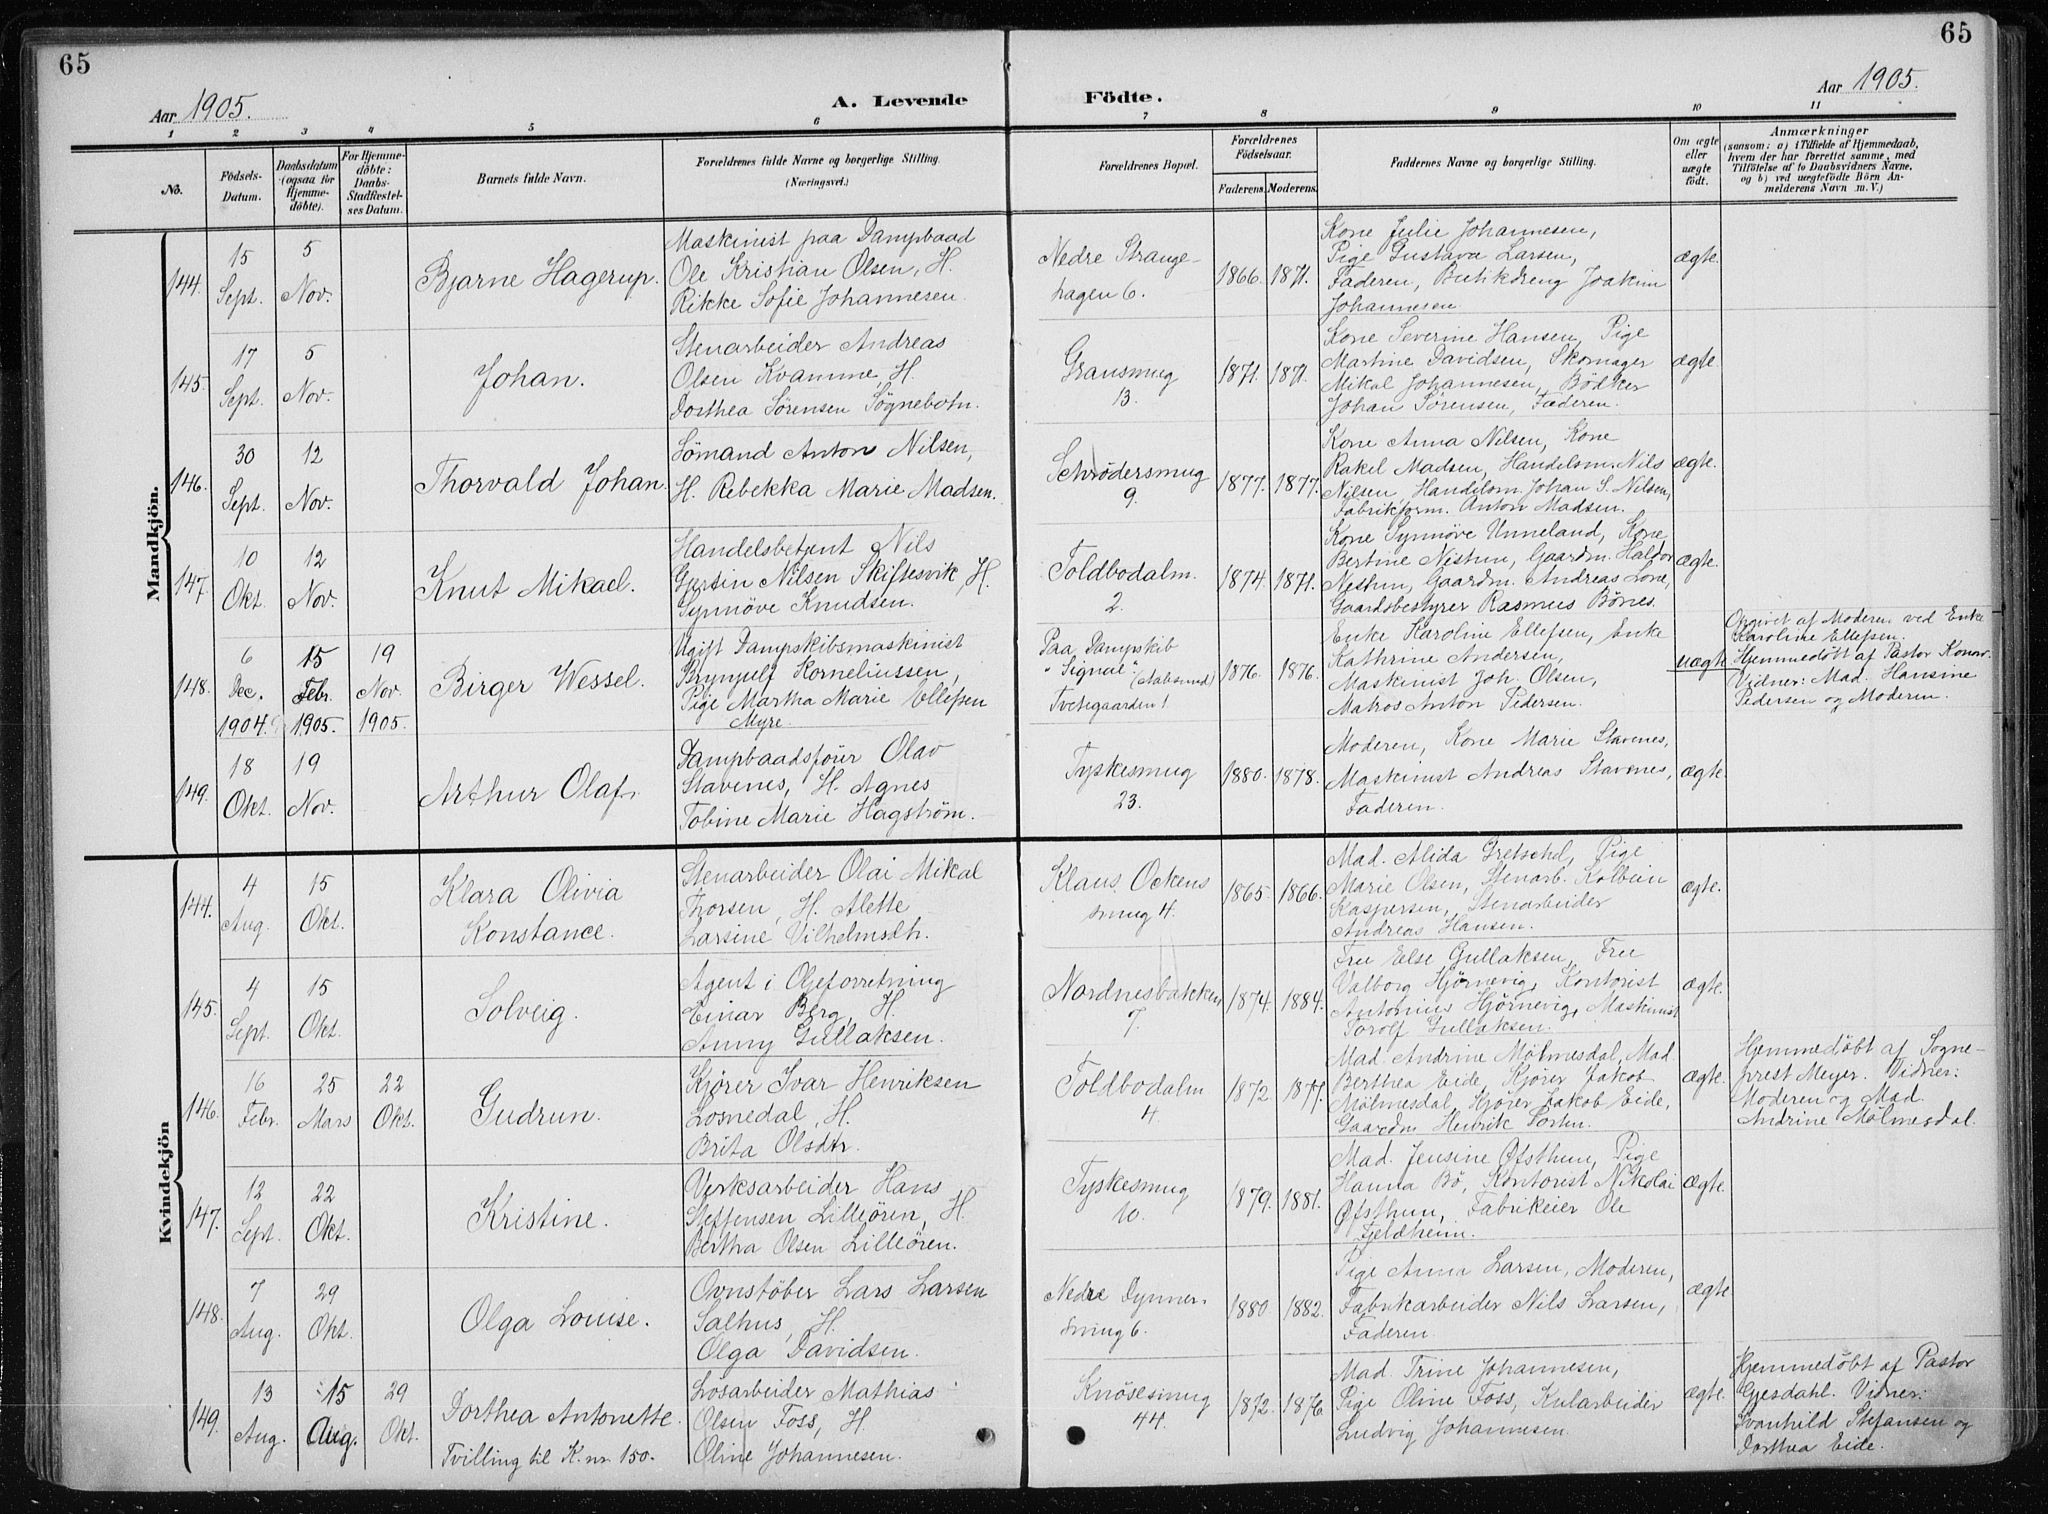 65
65
Aar 1905.
A. Levende
Födte.
Aar 1905.
1 2 3 4 5 6 7 8 9 10 11
No.
Födsels-
Datum.
Daabsdatum
(ogsaa for
Hjemme-
döbte).
For Hjemme-
döbte:
Daabs-
Stadfæstel-
ses Datum.
Barnets fulde Navn.
Forældrenes fulde Navne og borgerlige Stilling.
(Næringsvei.)
Forældrenes Bopæl.
Forældrenes
Födselsaar.
Faderens.
Moderens.
Faddernes Navne og borgerlige Stilling.
Om ægte
eller
uægte
födt.
Anmærkninger
(saasom: a) i Tilfælde af Hjemmedaab,
hvem der har forrettet samme, med
Tilföielse af to Daabsvidners Navne,
og b) ved uægtefödte Börn An-
melderens Navn m. V.)
Mandkjön.
144.
15
Sept.
5
Nov.
Bjarne Hagerup.
Maskinist paa Dampbaad
Ole Kristian Olsen, H.
Rikke Sofie Johannesen.
Nedre Strange-
hagen 6.
1866.
1871.
Kone Julie Johannesen,
Pige Gustava Larsen,
Faderen, Butikdreng Joakim
Johannesen
ægte.
145.
17
Sept.
5
Nov.
Johan.
Stenarbeider Andreas
Olsen Kvamme, H.
Dorthea Sørensen Søgnebotn.
Gransmug
13.
1871.
1871.
Kone Severine Hansen, Pige
Martine Davidsen, Skomager
Mikal Johannesen, Bödker
Johan Sørensen, Faderen.
ægte.
146.
30
Sept.
12
Nov.
Thorvald Johan.
Sömand Anton Nilsen,
H. Rebekka Marie Madsen.
Schrödersmug
9.
1877.
1877.
Kone Anna Nilsen, Kone
Rakel Madsen, Handelsm. Nils
Nilsen, Handelsm. Johan S. Nilsen,
Fabrikform. Anton Madsen.
ægte.
147.
10
Okt.
12
Nov.
Knut Mikael.
Handelsbetjent Nils
Gjertin Nilsen Skiftesvik, H.
Synnöve Knudsen.
Toldbodalm.
2.
1874.
1871.
Kone Synnöve Unneland, Kone
Bertine Nistun, Gaardm. Haldor
Nistun, Gaardm. Andreas Lone,
Gaardsbestyrer Rasmus Bönes.
ægte.
148.
6
Dec.
1904.
15
Febr.
1905.
19
Nov.
1905.
Birger Wessel.
Ugift Dampskibsmaskinist
Brynjulf Korneliussen,
Pige Martha Marie Ellefsen
Myre.
Paa Dampskib
"Signal"
Tvetegaarden 1
1876.
1876.
Enke Karoline Ellefsen, Enke
Kathrine Andersen,
Maskinist Joh. Olsen,
Matros Anton Pedersen.
uægte
Opgivet af Moderen ved Enke
Karoline Ellefsen.
Hjemmedöbt af Pastor Konow.
Vidner: Mad. Hansine
Pedersen og Moderen.
149.
18
Okt.
19
Nov.
Arthur Olaf.
Dampbaadsförer Olav
Stavenes, H. Agnes
Tobine Marie Hagström.
Tyskesmug
23.
1880.
1878.
Moderen, Kone Marie Stavenes,
Maskinist Andreas Stavenes,
Faderen.
ægte.
Kvindekjön
144.
4
Aug.
15
Okt.
Klara Olivia
Konstance.
Stenarbeider Olai Mikal
Thorsen, H. Alette
Larsine Vilhelmsdtr.
Klaus Ockens
smug 4.
1865.
1866.
Mad. Alida Gretschel, Pige
Marie Olsen, Stenarb. Kolbein
Kaspersen, Stenarbeider
Andreas Hansen.
ægte.
145.
4
Sept.
15
Okt.
Solveig.
Agent i Oljeforretning
Einar Berg, H.
Anny Gullaksen.
Nordnesbakken
7.
1874.
1884.
Fru Else Gullaksen, Fru
Valborg Hjørnevig, Kontorist
Antonius Hjørnevig, Maskinist
Torolf Gullaksen.
ægte.
146.
16
Febr.
25
Mars
22
Okt.
Gudrun.
Kjörer Ivar Henriksen
Losnedal, H.
Brita Olsdtr.
Toldbodalm
4.
1872.
1877.
Mad. Andrine Mölmesdal, Mad.
Berthea Eide, Kjörer Jakob
Mölmesdal, Kjörer Jakob Eide,
Gaardm Henrik
ægte.
Hjemmedöbt af Sogne-
prest Meyer. Vidner:
Moderen og Mad.
Andrine Mölmesdal.
147.
12
Sept.
22
Okt.
Kristine.
Verksarbeider Hans
Steffensen Lilleören, H.
Bertha Olsen Lilleören.
Tyskesmug
10.
1879.
1881.
Mad. Jensine Øfsthun, Pige
Hanna Bö, Kontorist Nikolai
Øfsthun, Fabrikeier Ole
Fjeldheim.
ægte.
148.
7
Aug.
29
Okt.
Olga Louise.
Ovnstöber Lars Larsen
Salhus, H.
Olga Davidsen.
Nedre Dynner-
smug 6.
1880.
1882.
Pige Anna Larsen, Moderen,
Fabrikarbeider Nils Larsen,
Faderen
ægte
149.
13
Aug.
15
Aug.
29
Okt.
Dorthea Antonette.
Tvilling til K. nr. 150.
Losarbeider Mathias
Olsen Foss, H.
Oline Johannesen.
Knösesmug
44.
1872.
1876.
Mad. Trine Johannesen,
Pige Oline Foss, Kularbeider
Ludvig Johannesen.
ægte.
Hjemmedöbt af Pastor
Gjesdahl. Vidner:
Svanhild Stefansen og
Dorthea Eide.